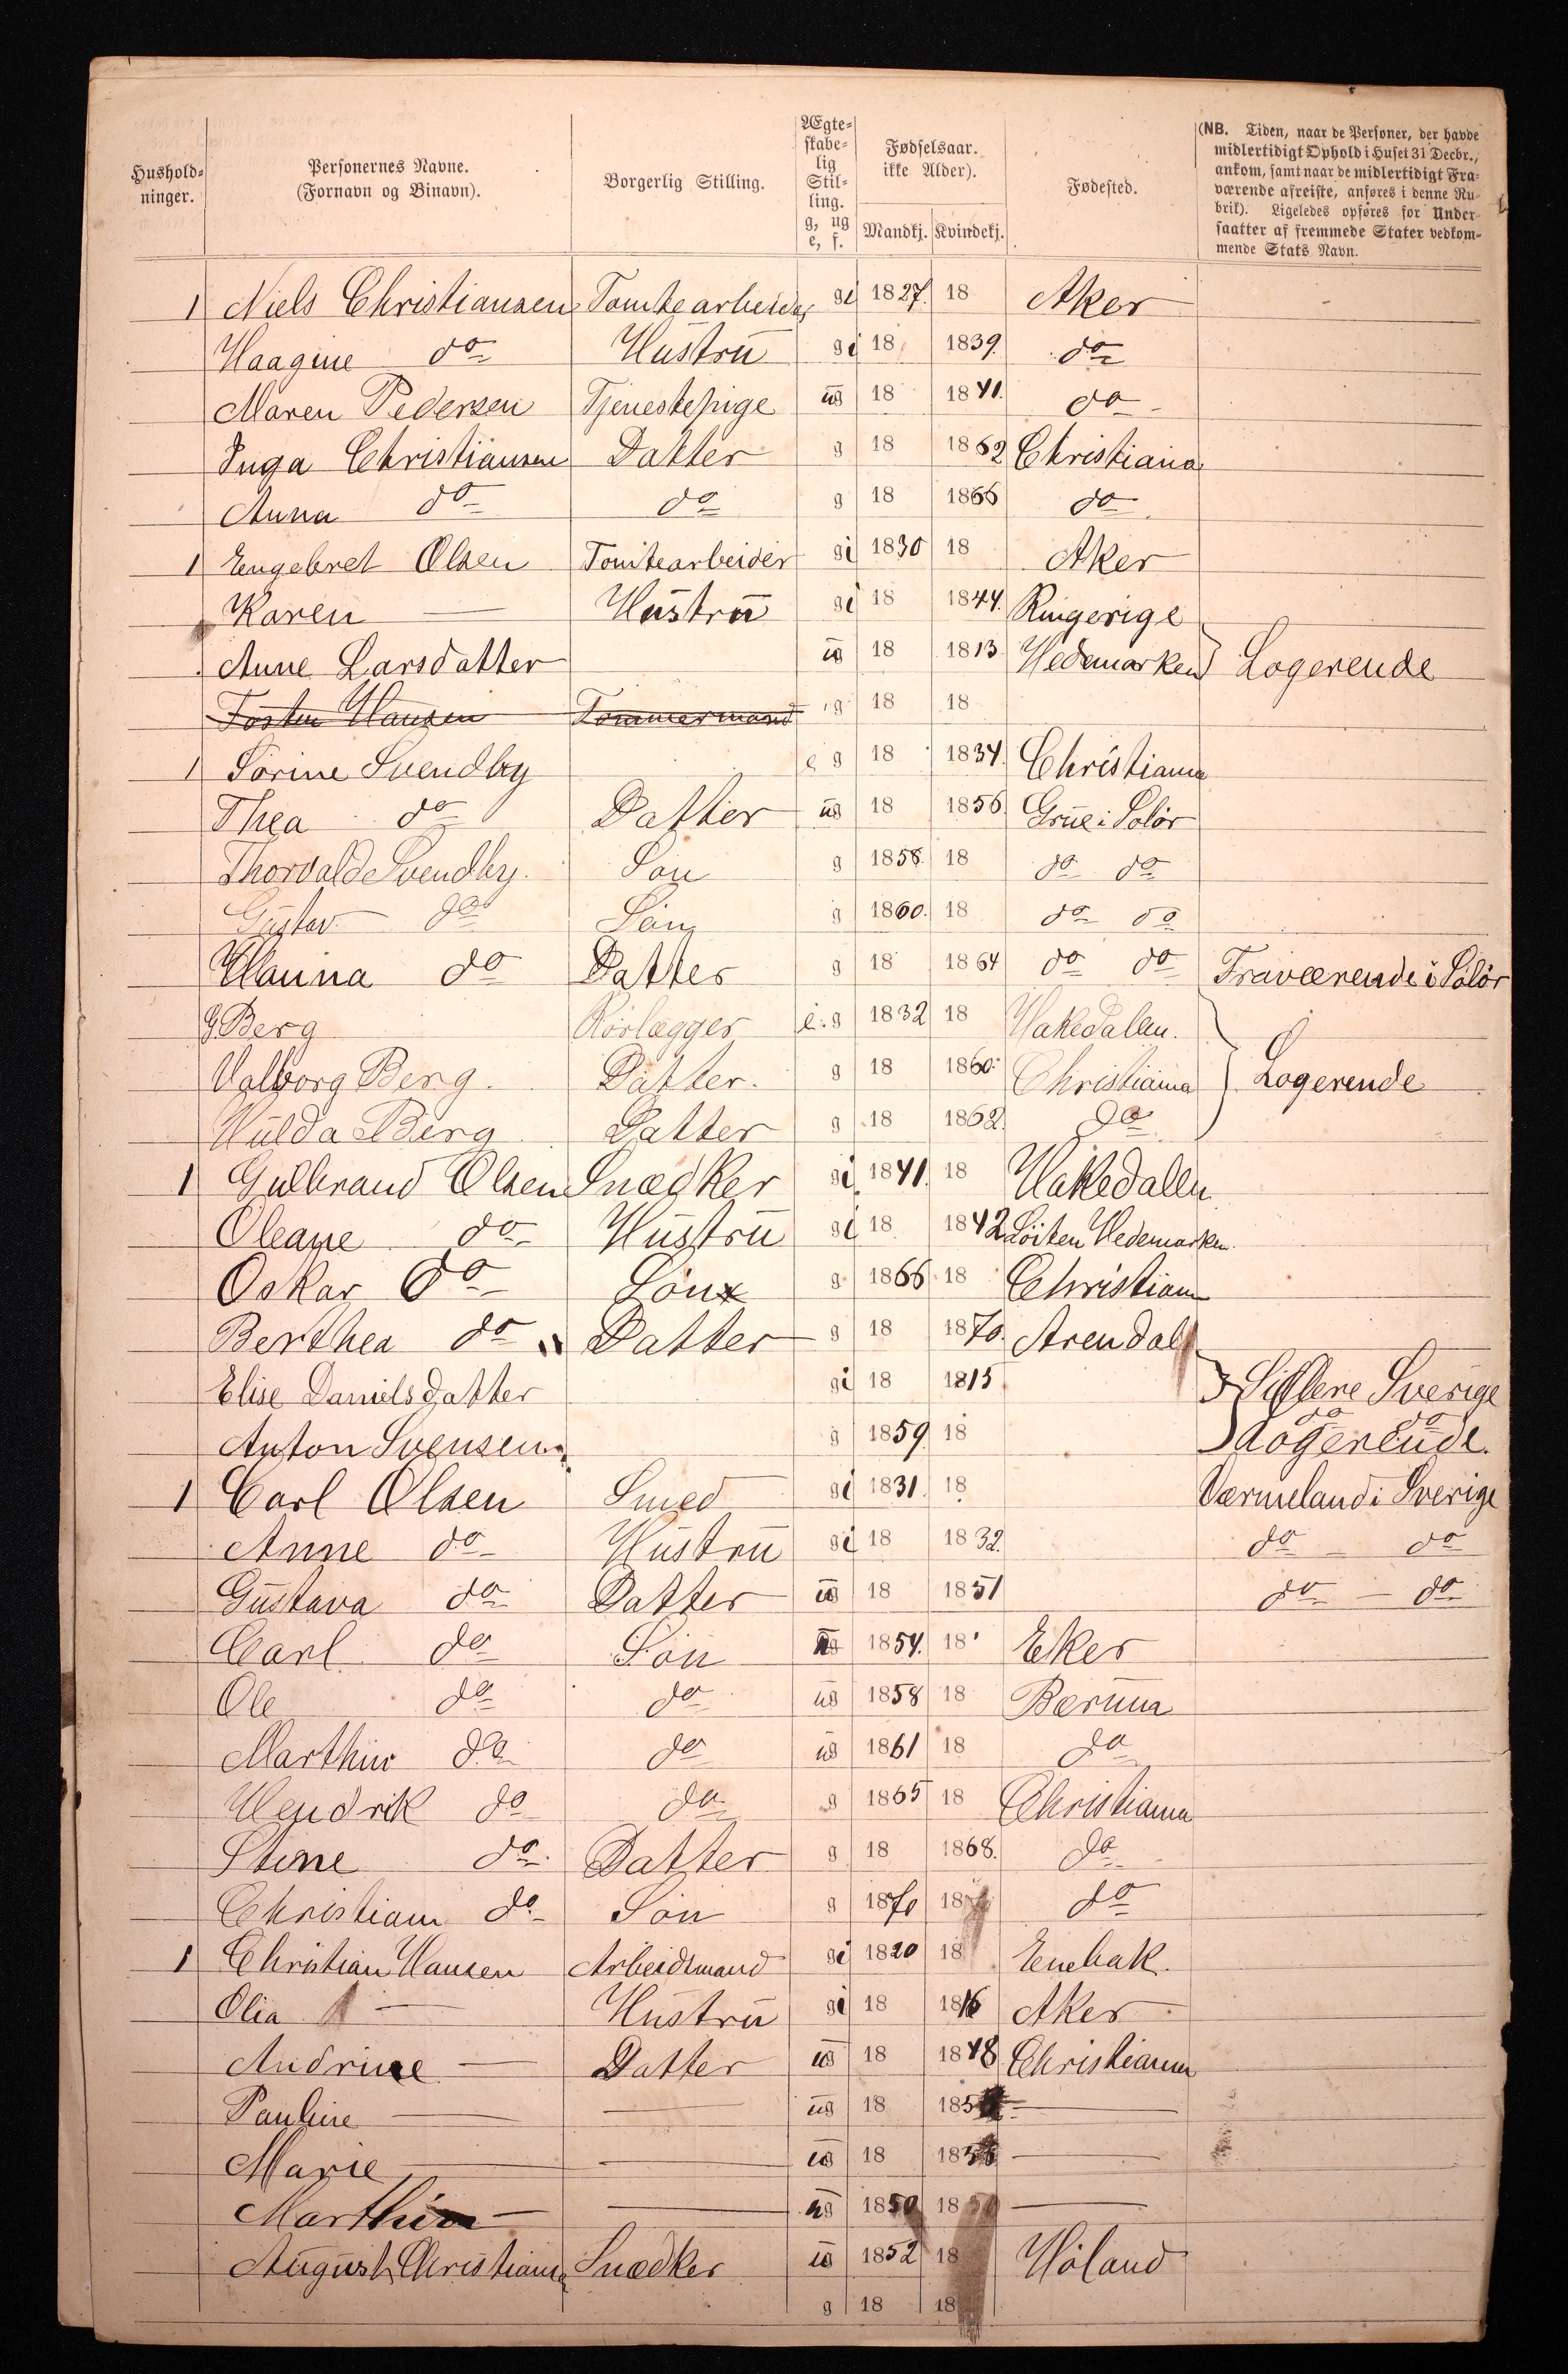 Hushold-
ninger.
Personernes Navne.
(Fornavn og Binavn).
Borgerlig Stilling.
Ægte-
skabe-
lig
Stil-
ling.
g, ug
e, f.
Fødselsaar.
ikke Alder).
Mandkj. Kvindekj.
Fødested.
(NB. Tiden, naar de Personer, der havde
midlertidigt Ophold i Huset 31 Decbr.,
ankom, samt naar de midlertidigt Fra-
værende afreiste, anføres i denne Ru-
brik). Ligeledes opføres for Under-
saatter af fremmede Stater vedkom-
mende Stats Navn.
1 Niels Christiansen Tomtearbeider gi 1827. 18 Aker
Haagine do Hustru gi 18 1839. do
Maren Pedersen Tjenestepige ug 18 1841. do
Inga Christiansen Datter g 18 1862 Christiania
Anna do do g 18 1866 do
1 Engebret Olsen Tomtearbeider gi 1830 18 Aker
Karen — Hustru gi 18 1844. Ringerige
Anne Larsdatter ug 18 1813 Hedemarken Logerende
Tosten Hansen Tømmermand g 18 18
1 Sørine Svendby e g 18 1834. Christiania
Thea do Datter ug 18 1856. Grue i Solør
Thorvald Svendby. Søn g 1858. 18 do do
Gustav do Søn g 1860. 18 do do
Hanna do Datter g 18 1864 do do Fraværende i Solør
G Berg Rørlægger e. g 1832 18 Hakedalen.
Valborg Berg. Datter. g 18 1860. Christiania Logerende
Hulda Berg Datter g 18 1862. do
1 Gulbrand Olsen Snedker gi 1841. 18 Hakedalen
Oleane do Hustru gi 18 1842 Løiten Hedemarken.
Oskar do Søn g 1866 18 Christian
Berthea do Datter g 18 1870. Arendal
Elise Danielsdatter gi 18 1813 Sverige
Anton Svensen g 1859. 18 do do Logerende.
1 Carl Olsen Smed gi 1831. 18 Værmeland i Sverige
Anne do Hustru gi 18 1832. do - do
Gustava do Datter ug 18 1851 do - do
Carl do Søn ug 1854. 18 Eker
Ole do do ug 1858 18 Bærum
Marthin do do ug 1861 18 do
Hendrik do do g 1865 18 Christiania
Stine do Datter g 18 1868. do
Christian do Søn g 1870 18 do
1 Christian Hansen Arbeidsmand gi 1820 18 Enebak.
Olia — Hustru gi 18 1816 Aker
Andrine — Datter ug 18 1848 Christiania
Pauline — — ug 18 185 —
Marie — — ug 18 18 —
Marthin — — ug 1850 18 —
August Christians Snedker ug 1852 18 Høland
g 18 18